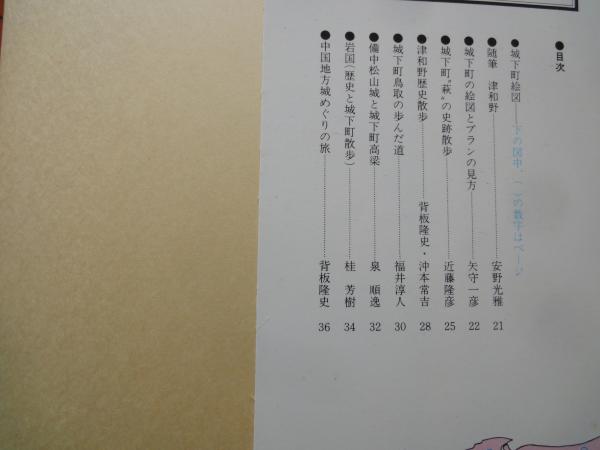 ●目次
●城下町絵図——下の図中、( )の数字はページ
●随筆 津和野……安野光雅 21
●城下町の絵図とプランの見方……矢守一彦 22
●城下町“萩”の史跡散歩……近藤隆彦 25
●津和野歴史散歩……背板隆史・沖本常吉 28
●城下町鳥取の歩んだ道……福井淳人 30
●備中松山城と城下町高梁……泉 順逸 32
●岩国(歴史と城下町散歩)……桂 芳樹 34
●中国地方城めぐりの旅……背板隆史 36